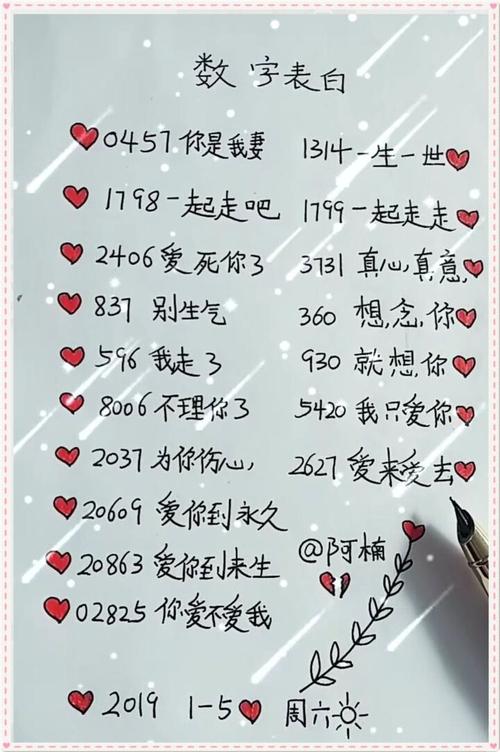 数字表白
0457你是我妻 1314一生一世
1798一起走吧 1799一起走走
2406爱死你了 3731真心真意
837 别生气 360 想念你
596 我走了 930 就想你
8006不理你了 5420我只爱你
2037为你伤心 2627爱来爱去
20609爱你到永久
20863爱你到来生
@阿楠
02825你爱不爱我
2019 1-5 周六